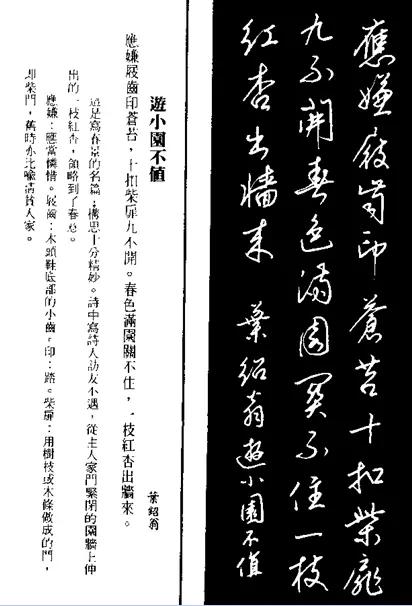 應嫌屐齒印蒼苔十扣柴扉
九不開春色滿園関不住一枝
紅杏出牆來 葉紹翁遊小園不值
遊小園不值 葉紹翁
應嫌屐齒印蒼苔,十扣柴扉九不開。春色滿園關不住,一枝紅杏出牆來。
這是寫春景的名篇;構思十分精妙。詩中寫詩人訪友不遇,從主人家門緊閉的園牆上伸
出的一枝紅杏,領略到了春意。
應嫌:應當憐惜。屐齒:木頭鞋底部的小齒。印:踏。柴扉:用樹枝或木條做成的門,
即柴門,舊時亦比喻清貧人家。